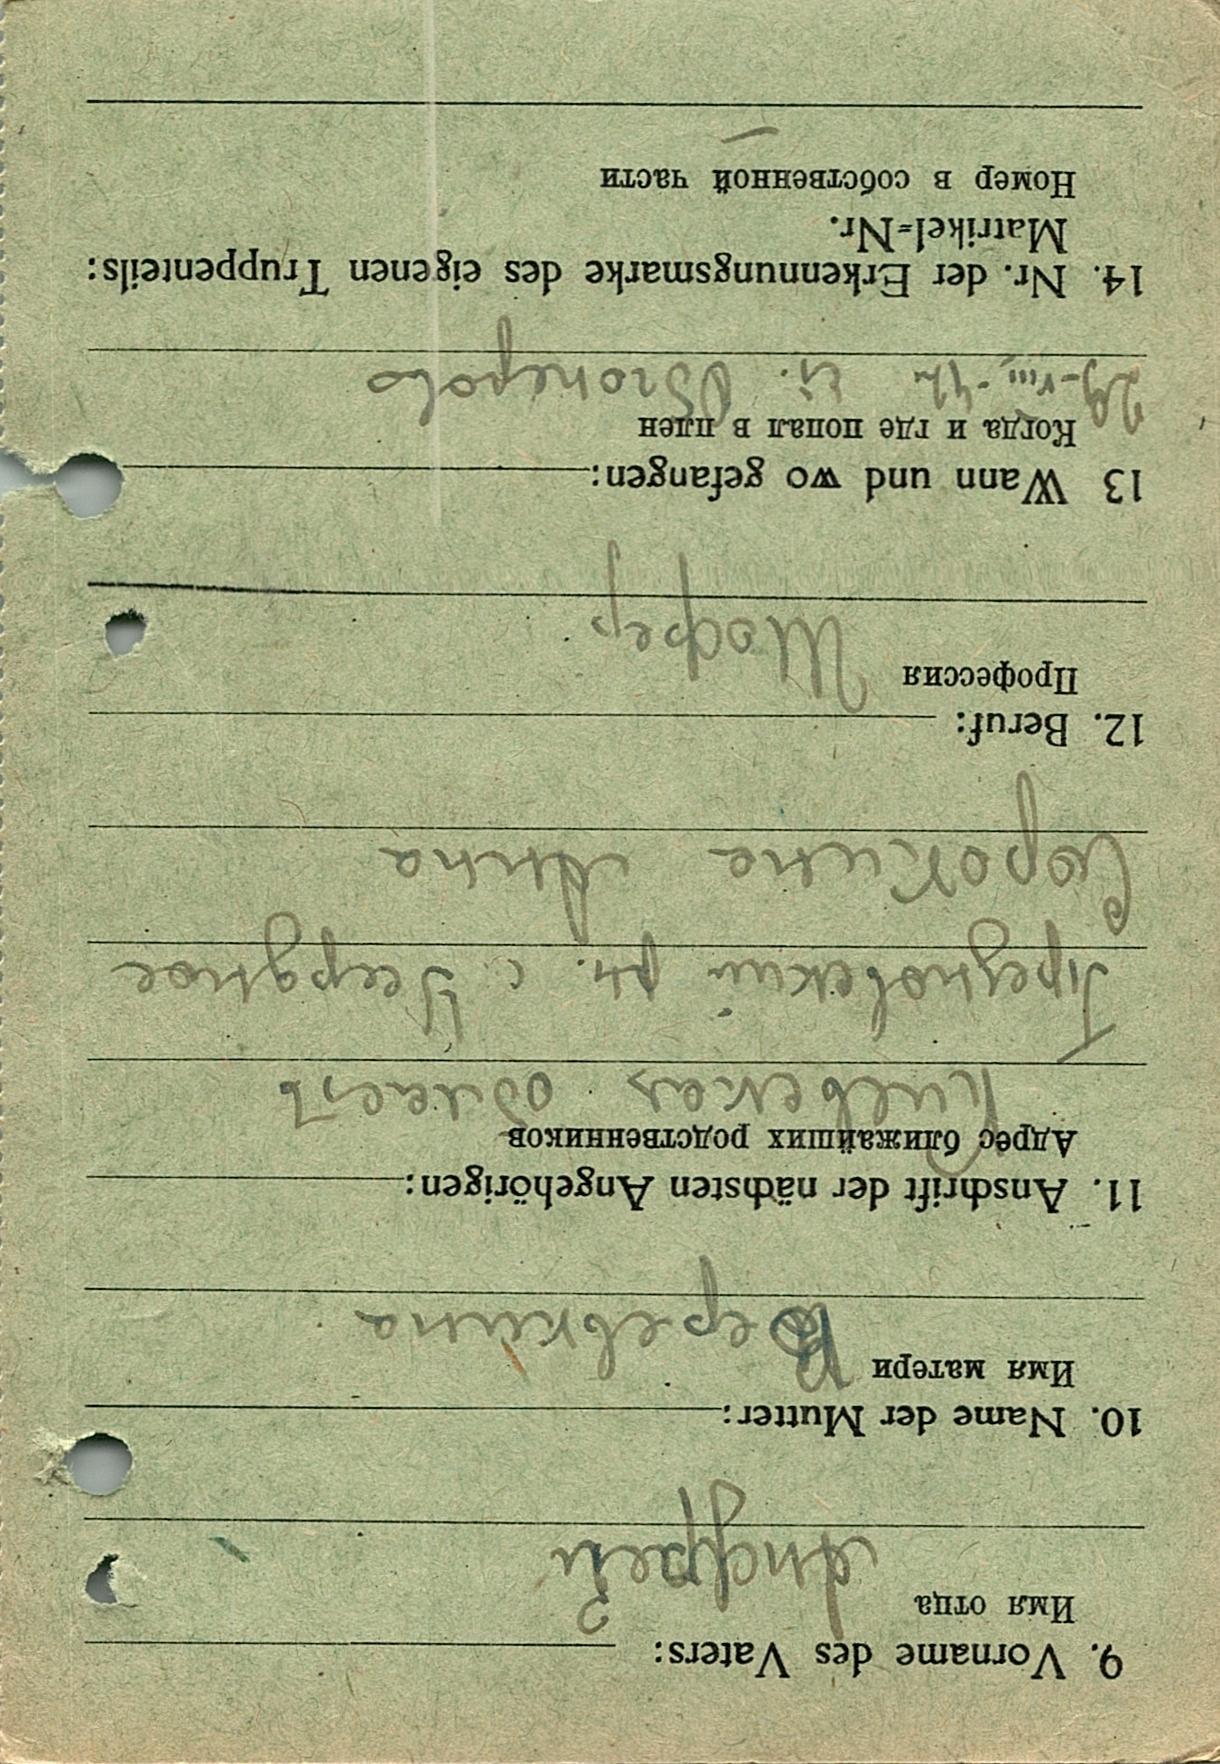 9. Vorname des Vaters:
Имя отца
Андрей
10. Name der Mutter:
Имя матери
Веревкина
11. Anschrift der nächsten Angehörigen:
Адрес ближайших родственников
Киевская область
рн. с
Сорокина Анна
12. Beruf:
Профессия
Шофер
13 Wann und wo gefangen:
Когда и где попал в плен
29-VIII-42
14. Nr. der Erkennungsmarke des eigenen Truppenteils:
Matrikel-Nr.
Номер в собственной части
—